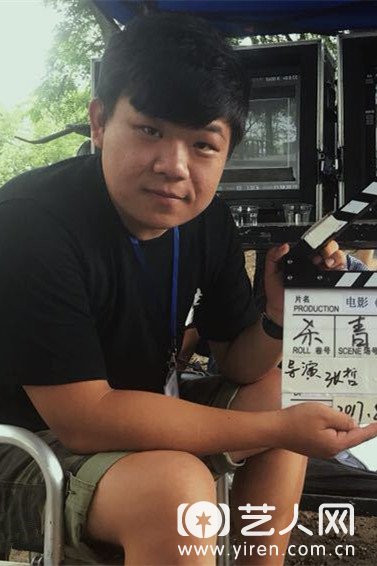 片名
PRODUCTION 电影
杀 青
ROLL 卷号 SCENE 场号
导演 张哲
2017.8
艺人网
www.yiren.com.cn